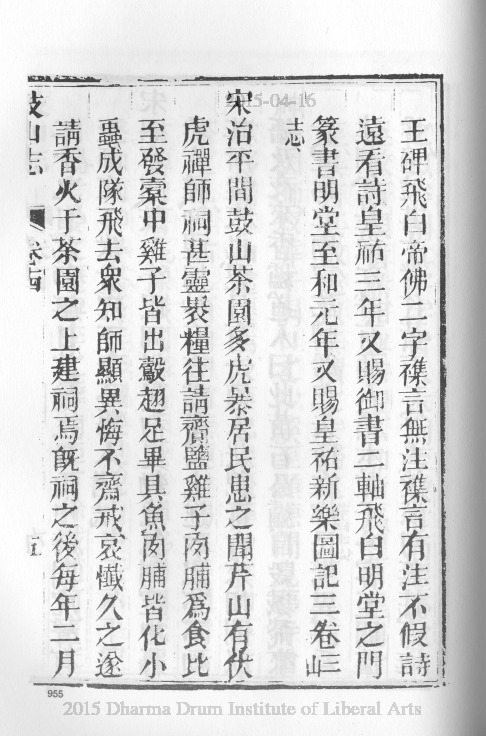 王碑飛白帝佛二字襍言無注襍言有注不假詩
遠看詩皇祐三年又賜御書二軸飛白明堂之門
篆書明堂至和元年又賜皇祐新樂圖記三卷三山
志
宋治平間鼓山茶園多虎暴居民患之聞芹山有伏
虎禪師祠甚靈褁糧往請齎鹽雞子肉脯爲食比
至發橐中雞子皆出鷇翅足畢具魚肉脯皆化小
蟲成隊飛去衆知師顯異悔不齋戒哀懺久之遂
請香火于茶園之上建祠焉旣祠之後每年二月
鼓山志 卷十四
十五
955
5-04-16
2015 Dharma Drum Institute of Liberal Arts